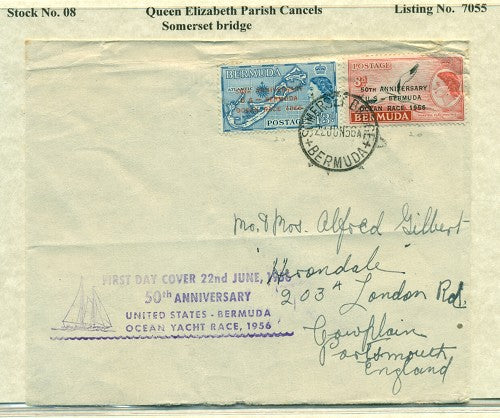 Stock No. 08 Queen Elizabeth Parish Cancels Listing No. 7055
Somerset bridge
BERMUDA
POSTAGE
1/3
POSTAGE
3D
50TH ANNIVERSARY
U.S. - BERMUDA
OCEAN RACE 1956
BERMUDA
SOMERSET BRIDGE
22 JUN 56
BERMUDA
Mr. & Mrs. Alfred Gilbert
"Herondale"
203A London Rd.
Cowplain
Portsmouth
England
FIRST DAY COVER 22nd JUNE, 1956
50th ANNIVERSARY
UNITED STATES - BERMUDA
OCEAN YACHT RACE, 1956